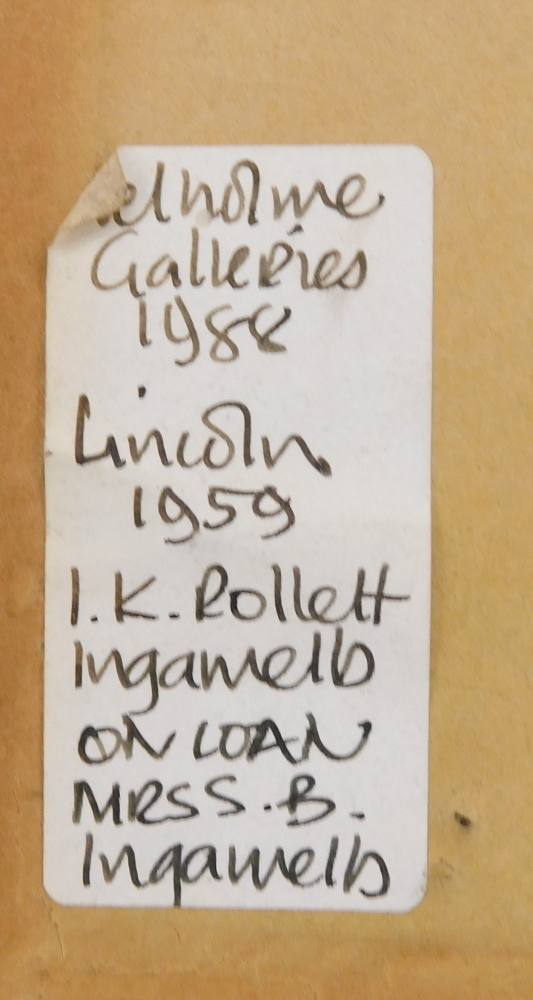 elholme
Galleries
1988
Lincoln
1959
I.K. Rollett
Ingamells
ON LOAN
MRS S. B.
Ingamells